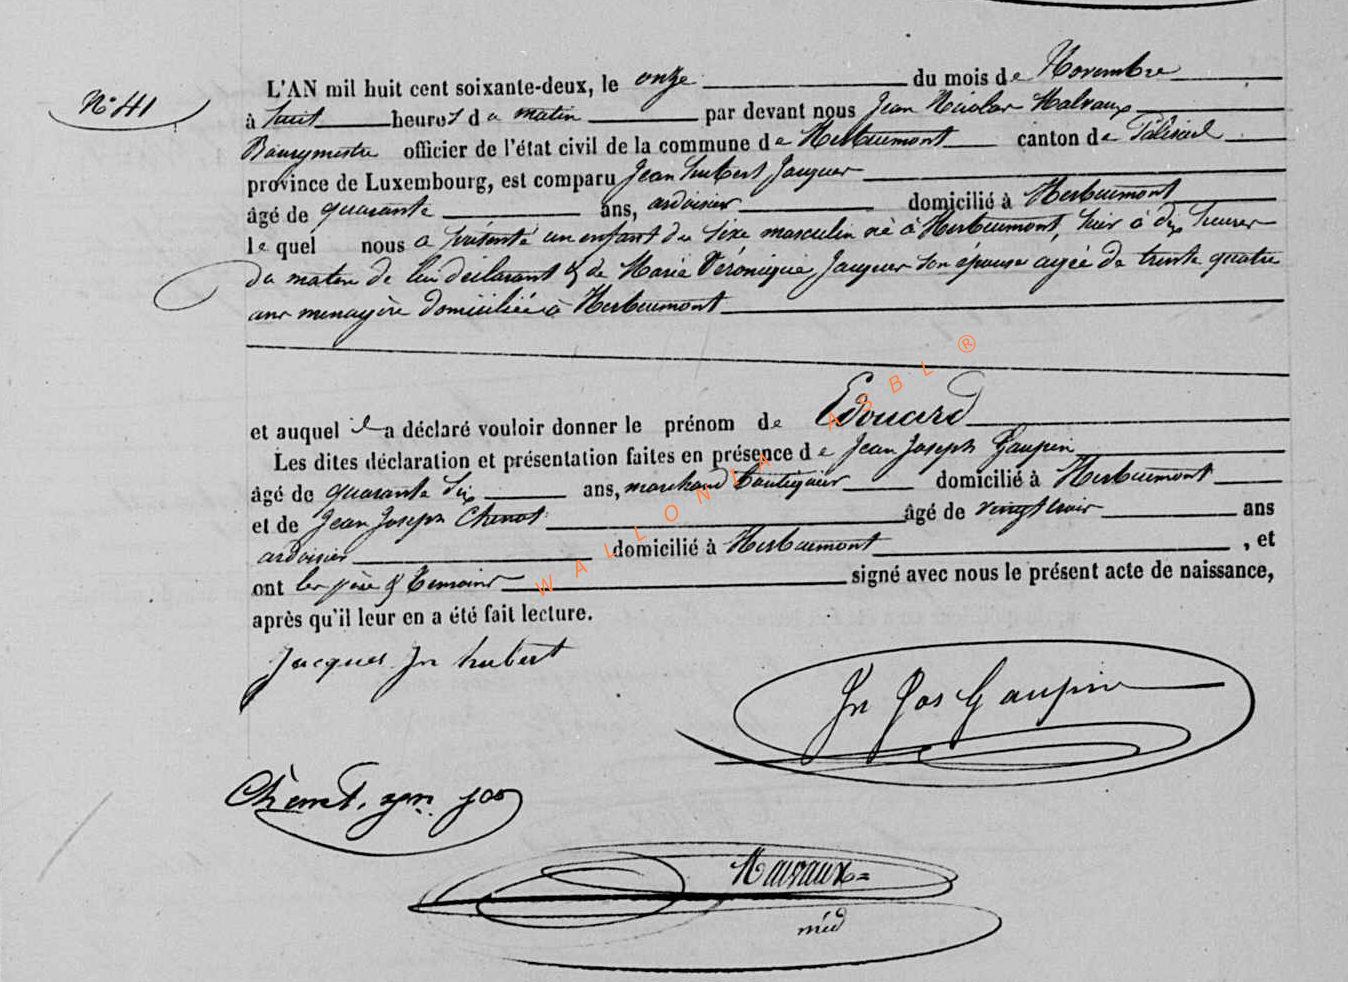 N° 41
L'AN mil huit cent soixante-deux, le onze du mois de Novembre
à huit heures du matin par devant nous Jean Nicolas Malvaux
Bourgmestre officier de l'état civil de la commune de Herbeumont canton de Paliseul
province de Luxembourg, est comparu Jean hubert Jacques
âgé de quarante ans, ardoisier domicilié à Herbeumont
lequel nous a présenté un enfant du sexe masculin né à Herbeumont, hier à dix heures
du matin de lui déclarant & de Marie Véronique Jacques son épouse agée de trente quatre
ans menagère domiciliée à Herbeumont
et auquel il a déclaré vouloir donner le prénom de Edouard
Les dites déclaration et présentation faites en présence de Jean Joseph Gaupin
âgé de quarante six ans, marchand boutiquier domicilié à Herbeumont
et de Jean Joseph Chenot âgé de vingt trois ans
ardoisier domicilié à Herbeumont , et
ont les père & témoins signé avec nous le présent acte de naissance,
après qu'il leur en a été fait lecture.
Jacques Jn hubert
Jn Jos Gaupin
Chenot, jos
Malvaux
WALLONIA ASBL ®